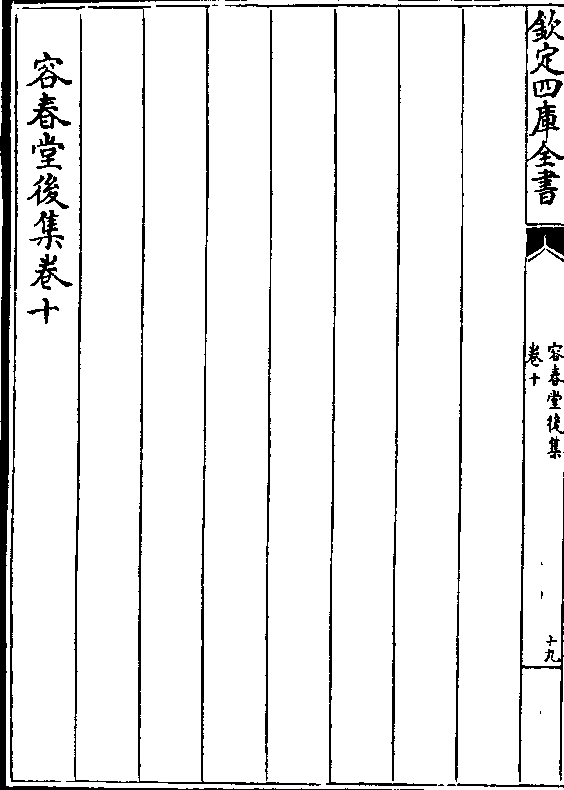 欽定四庫全書
容春堂後集
卷十
十九
容春堂後集卷十